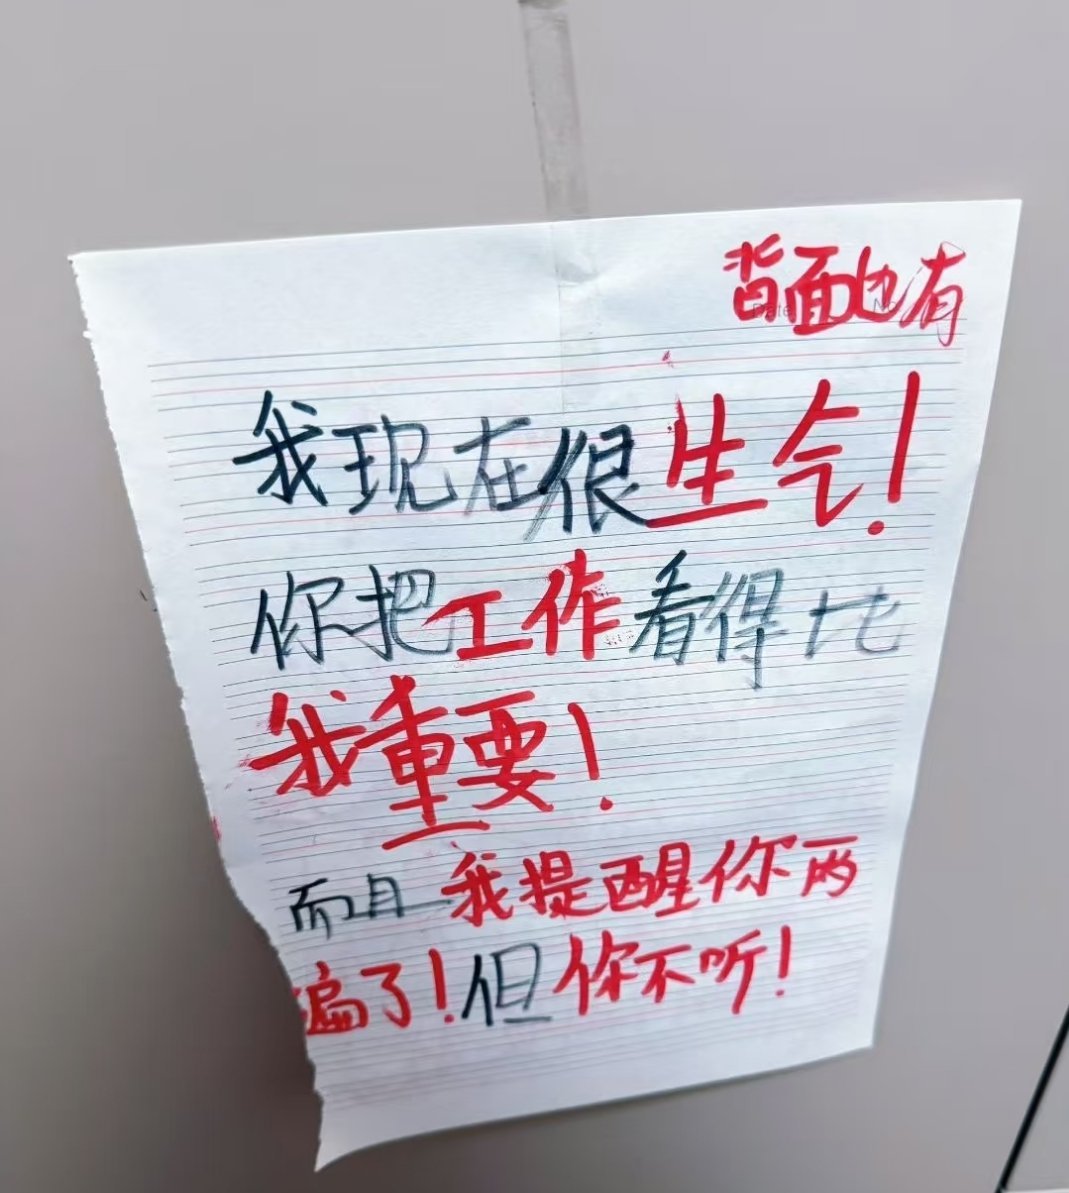 背面也有
我现在很生气！
你把工作看得比
我重要！
而且我提醒你两
遍了！但你不听！